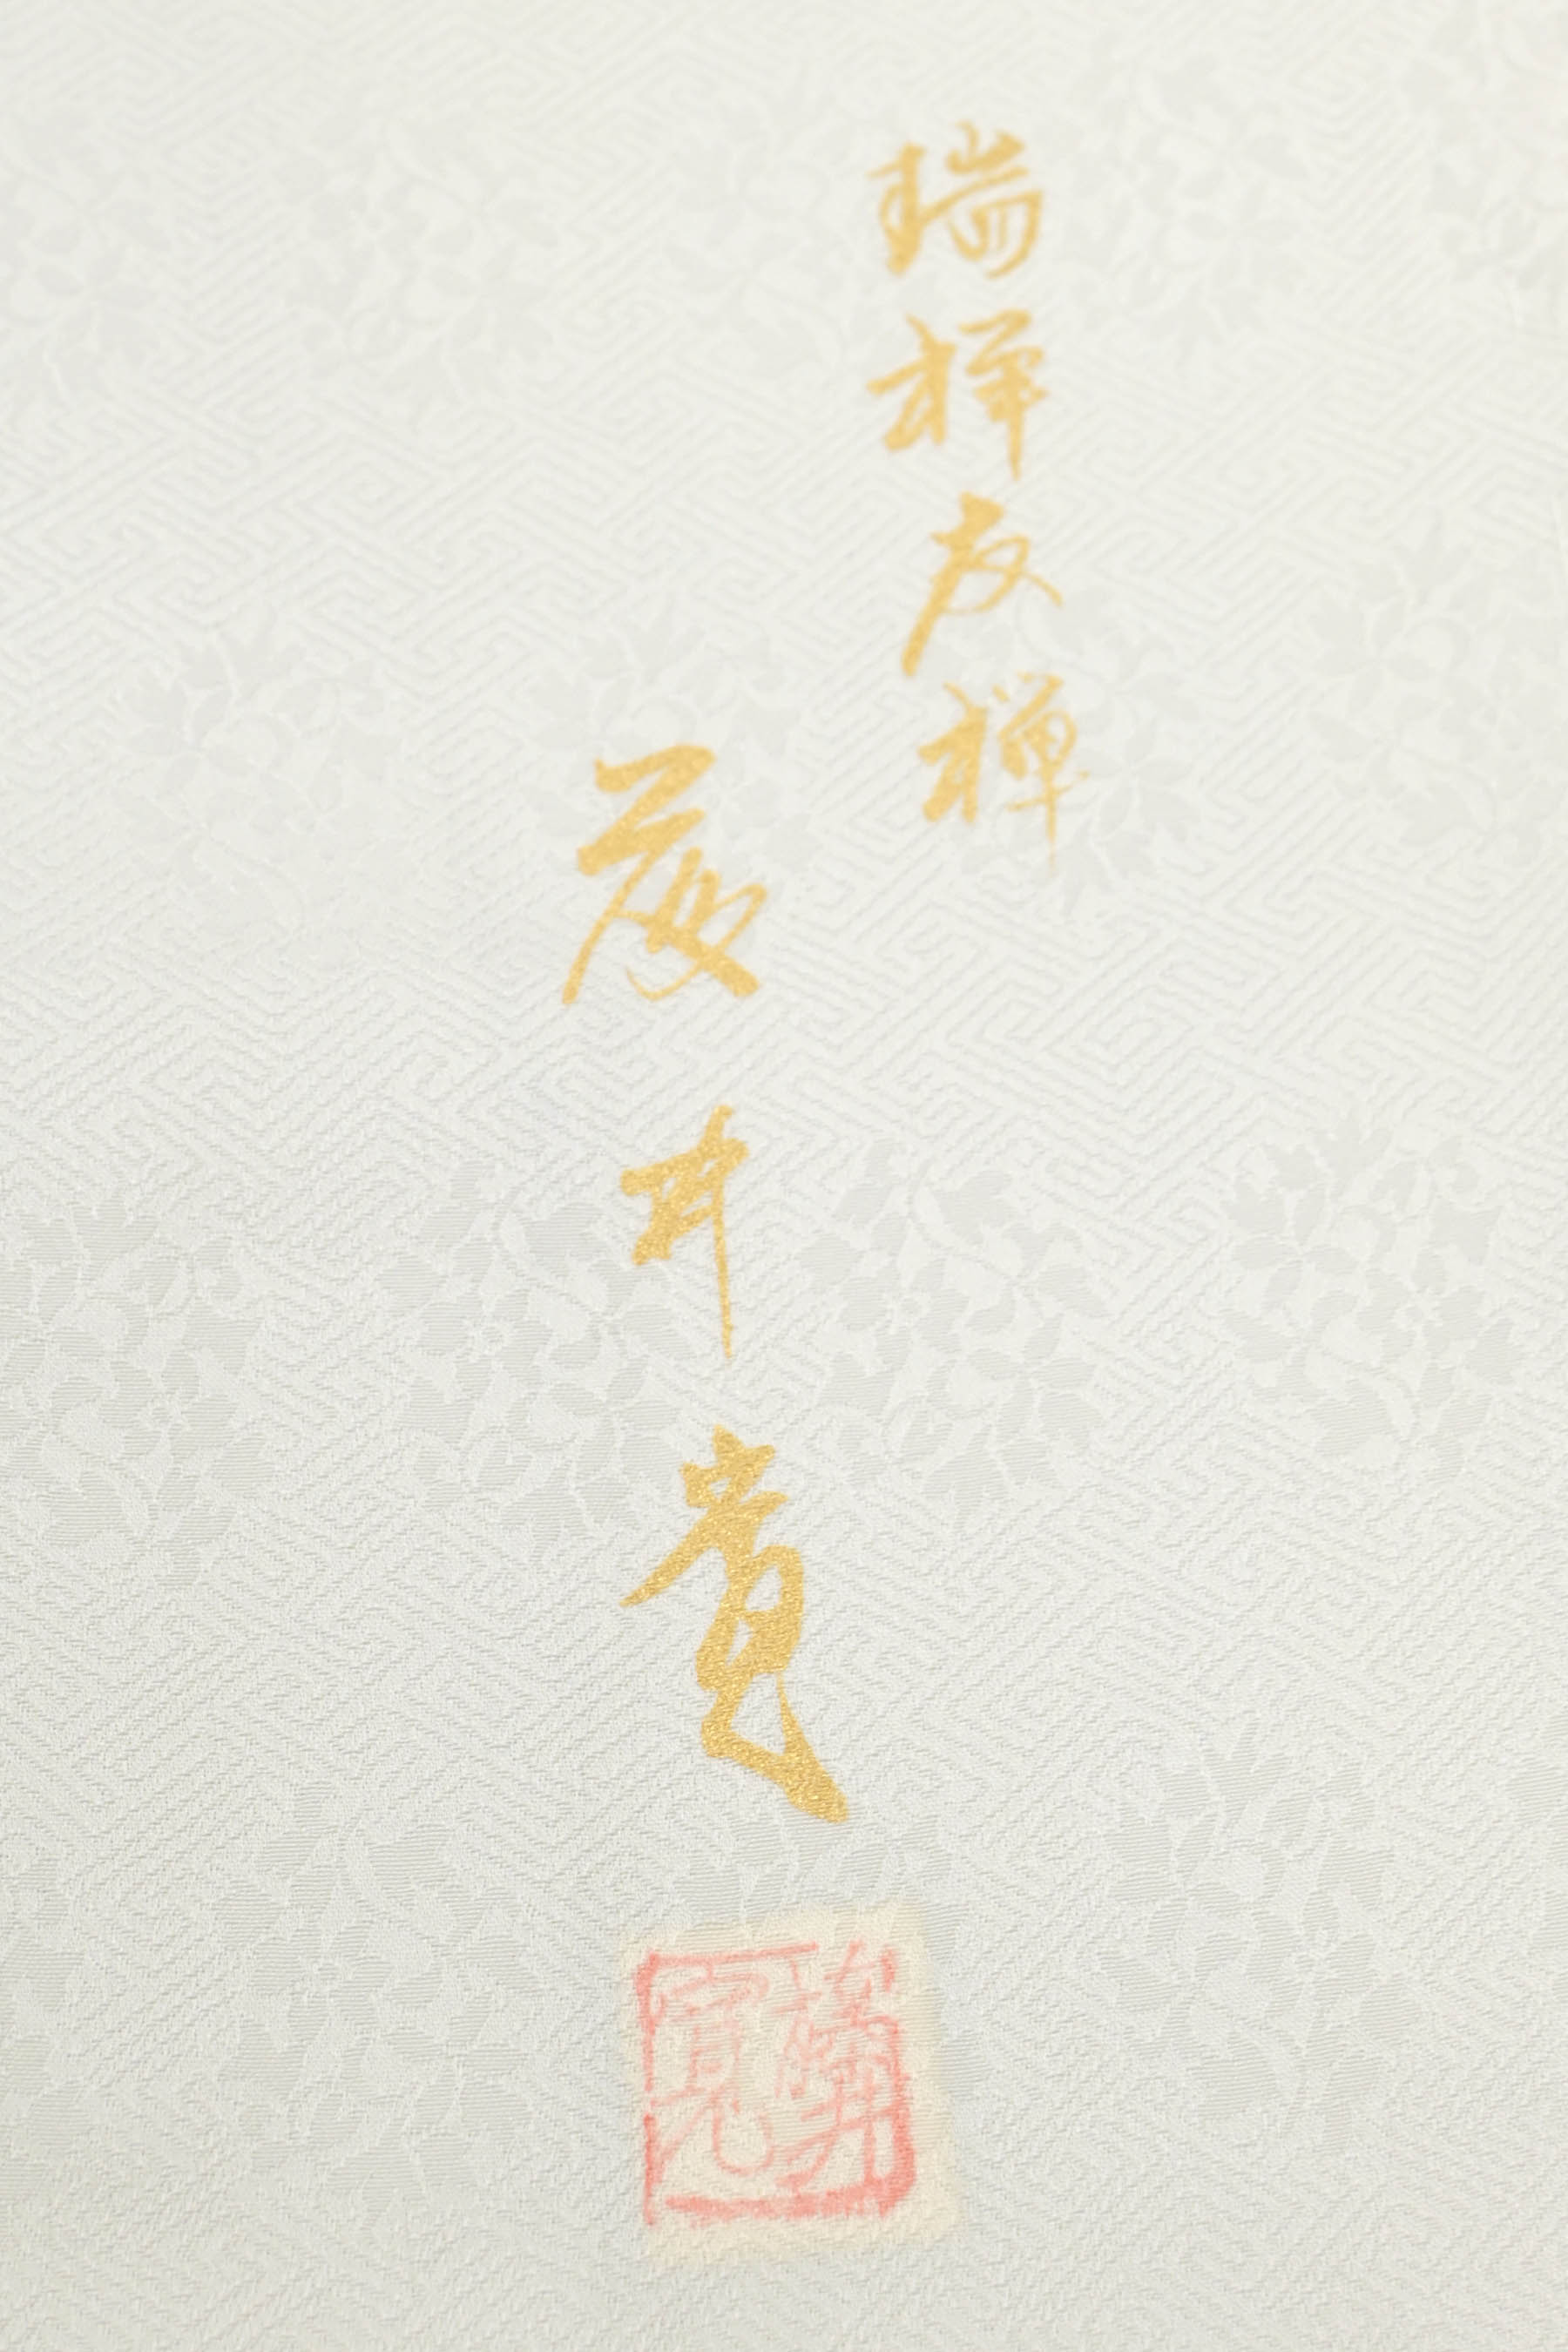 瑞祥友禅
藤井寛
藤井
寛